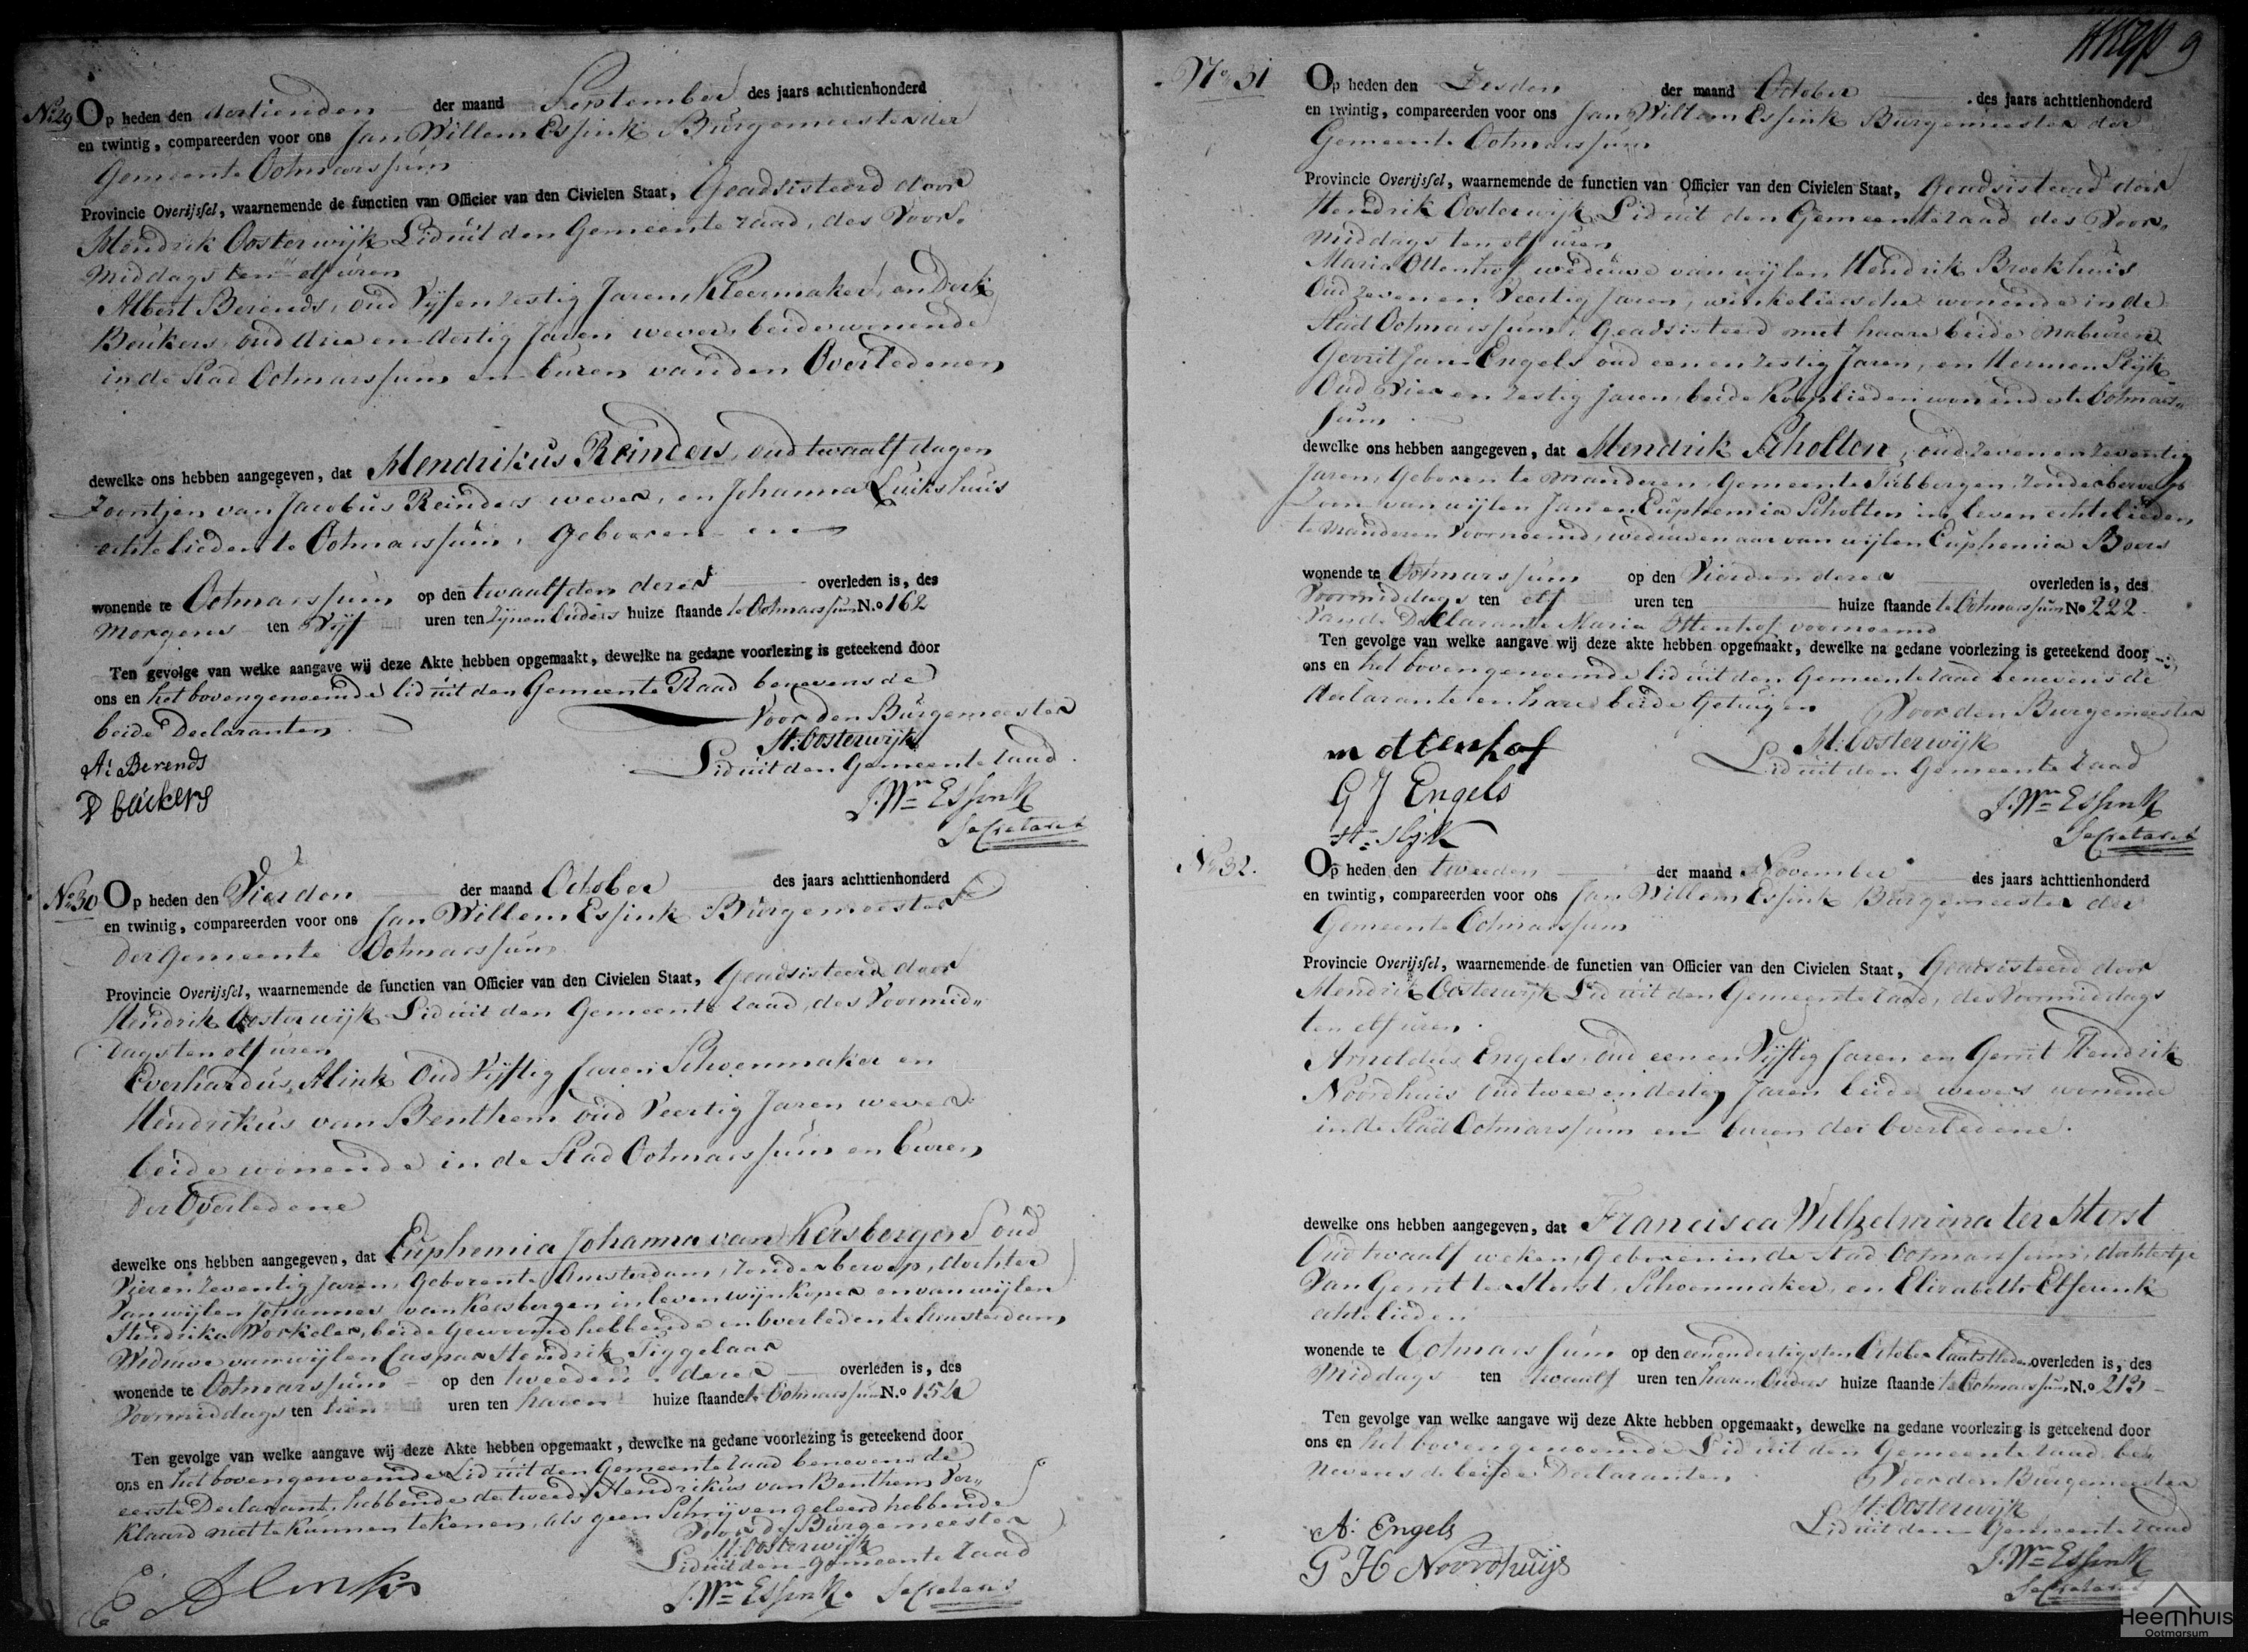 No 29 Op heden den dertienden der maand September des jaars achttienhonderd
en twintig, compareerden voor ons Jan Willem Essink Burgemeester der
Gemeente Ootmarssum
Provincie Overijssel, waarnemende de functien van Officier van den Civielen Staat, Geadsisteerd door
Hendrik Oosterwijk Lid uit den Gemeente raad, des Voor„
middags ten elf uren
Albert Berends, oud Vijf en zestig Jaren, Kleermaker, en Derk
Beukers, oud drie en dertig Jaren wever, beide wonende
in de Stad Ootmarssum en buren van den Overledenen
dewelke ons hebben aangegeven, dat Hendrikus Reinders, oud twaalf dagen
Zoontjen van Jacobus Reinders wever, en Johanna Luikshuis
echtelieden te Ootmarssum, geboren en
wonende te Ootmarssum op den twaalfden dezer overleden is, des
Morgens ten Vijf uren ten Zijnen Ouders huize staande te Ootmarssum N.o 162
Ten gevolge van welke aangave wij deze Akte hebben opgemaakt, dewelke na gedane voorlezing is geteekend door
ons en het bovengenoemde lid uit den Gemeente Raad benevens de
beide Declaranten.
Voor den Burgemeester
H: Oosterwijk
Lid uit den Gemeente raad
A: Berends
D bäckers
J. Wm Essink
Secretaris
No 30 Op heden den Vierden der maand October des jaars achttienhonderd
en twintig, compareerden voor ons Jan Willem Essink Burgemeester
Der Gemeente Ootmarssum
Provincie Overijssel, waarnemende de functien van Officier van den Civielen Staat, Geadsisteerd door
Hendrik Oosterwijk Lid uit den Gemeente raad, des Voormid„
dags ten elf uren
Everhardus Alink Oud Vijftig Jaren Schoenmaker en
Hendrikus van Benthem oud Veertig Jaren wever
beide wonende in de Stad Ootmarssum en buren
der Overledene
dewelke ons hebben aangegeven, dat Euphemia Johanna van Kersbergen oud
Vier en Zeventig Jaren, Geboren te Amsterdam, zonder beroep, dochter
Van wijlen Johannes van Keesbergen in leven wijnkoper en van wijlen
Hendrika Workeler, beide Gewoond hebbende en overleden te Amsterdam,
Weduwe van wijlen Caspar Hendrik Tiggelaar
wonende te Ootmarssum op den tweeden dezer overleden is, des
Voormiddags ten tien uren ten haren huize staande te Ootmarssum N.o 154
Ten gevolge van welke aangave wij deze Akte hebben opgemaakt, dewelke na gedane voorlezing is geteekend door
ons en het bovengenoemde Lid uit den Gemeente raad benevens de
eerste Declarant, hebbende de tweede Hendrikus van Benthem Ver„
klaard niet te kunnen tekenen, als geen Schrijven geleerd hebbende
Voor de Burgemeester
H. Oosterwijk
Lid uit den gemeente raad
E Alink
J. Wm Essink. Secretaris
9
No 31 Op heden den Zesden der maand October des jaars achttienhonderd
en twintig, compareerden voor ons Jan Willem Essink Burgemeester der
Gemeente Ootmarssum
Provincie Overijssel, waarnemende de functien van Officier van den Civielen Staat, Geadsisteerd door
Hendrik Oosterwijk Lid uit den Gemeente raad des Voor„
middags ten elf uren
Maria Ottenhof weduwe van wijlen Hendrik Broekhuis
Oud Zeven en Veertig Jaren, winkeliersche wonende in de
Stad Ootmarssum, Geadsisteerd met haare beide naburen
Gerrit Jan Engels oud een en zestig Jaren, en Hermen Slijk
Oud Vier en zestig jaren, beide Kooplieden wonende te Ootmars„
sum
dewelke ons hebben aangegeven, dat Hendrik Scholten, oud zeven en zeventig
Jaren, Geboren te Manderen, Gemeente Tubbergen, zonder beroep
Zoon van wijlen Jan en Euphemia Scholten in leven echtelieden
te Manderen Voornoemd, weduwenaar van wijlen Euphemia Boers
wonende te Ootmarssum op den Vierden dezer overleden is, des
Voormiddags ten elf uren ten huize staande te Ootmarssum No 222
Van de Declarante Maria Ottenhof voornoemd
Ten gevolge van welke aangave wij deze akte hebben opgemaakt, dewelke na gedane voorlezing is geteekend door
ons en het bovengenoemde lid uit den Gemeente raad benevens de
declarante en hare beide Getuigen
Voor den Burgemeester
H: Oosterwijk
Lid uit den Gemeente raad
m ottenhof
G J Engels
H: Slijk
J. Wm Essink
Secretaris
No 32. Op heden den tweeden der maand November des jaars achttienhonderd
en twintig, compareerden voor ons Jan Willem Essink Burgemeester der
Gemeente Ootmarssum
Provincie Overijssel, waarnemende de functien van Officier van den Civielen Staat, Geadsisteerd door
Hendrik Oosterwijk Lid uit den Gemeente raad, des Voormiddags
ten elf uren.
Arnoldus Engels, Oud een en Vijftig Jaren en Gerrit Hendrik
Noordhuis oud twee en dertig Jaren beide wevers wonende
in de Stad Ootmarssum en buren der Overledene.
dewelke ons hebben aangegeven, dat Francisca Wilhelmina ter Horst
Oud twaalf weken, Geboren in de Stad Ootmarssum, dochtertje
Van Gerrit ter Horst, Schoenmaker, en Elisabeth Elferink
echtelieden
wonende te Ootmarssum op den een en dertigsten October laatstleden overleden is, des
Middags ten twaalf uren ten haren Ouders huize staande te Ootmarssum N.o 213
Ten gevolge van welke aangave wij deze Akte hebben opgemaakt, dewelke na gedane voorlezing is geteekend door
ons en het bovengenoemde Lid uit den Gemeente raad be„
nevens de beide Declaranten
Voor den Burgemeester
H: Oosterwijk
Lid uit den Gemeente raad
A: Engels
G H Noordhuijs
J. Wm Essink
Secretaris
Heemhuis
Ootmarsum